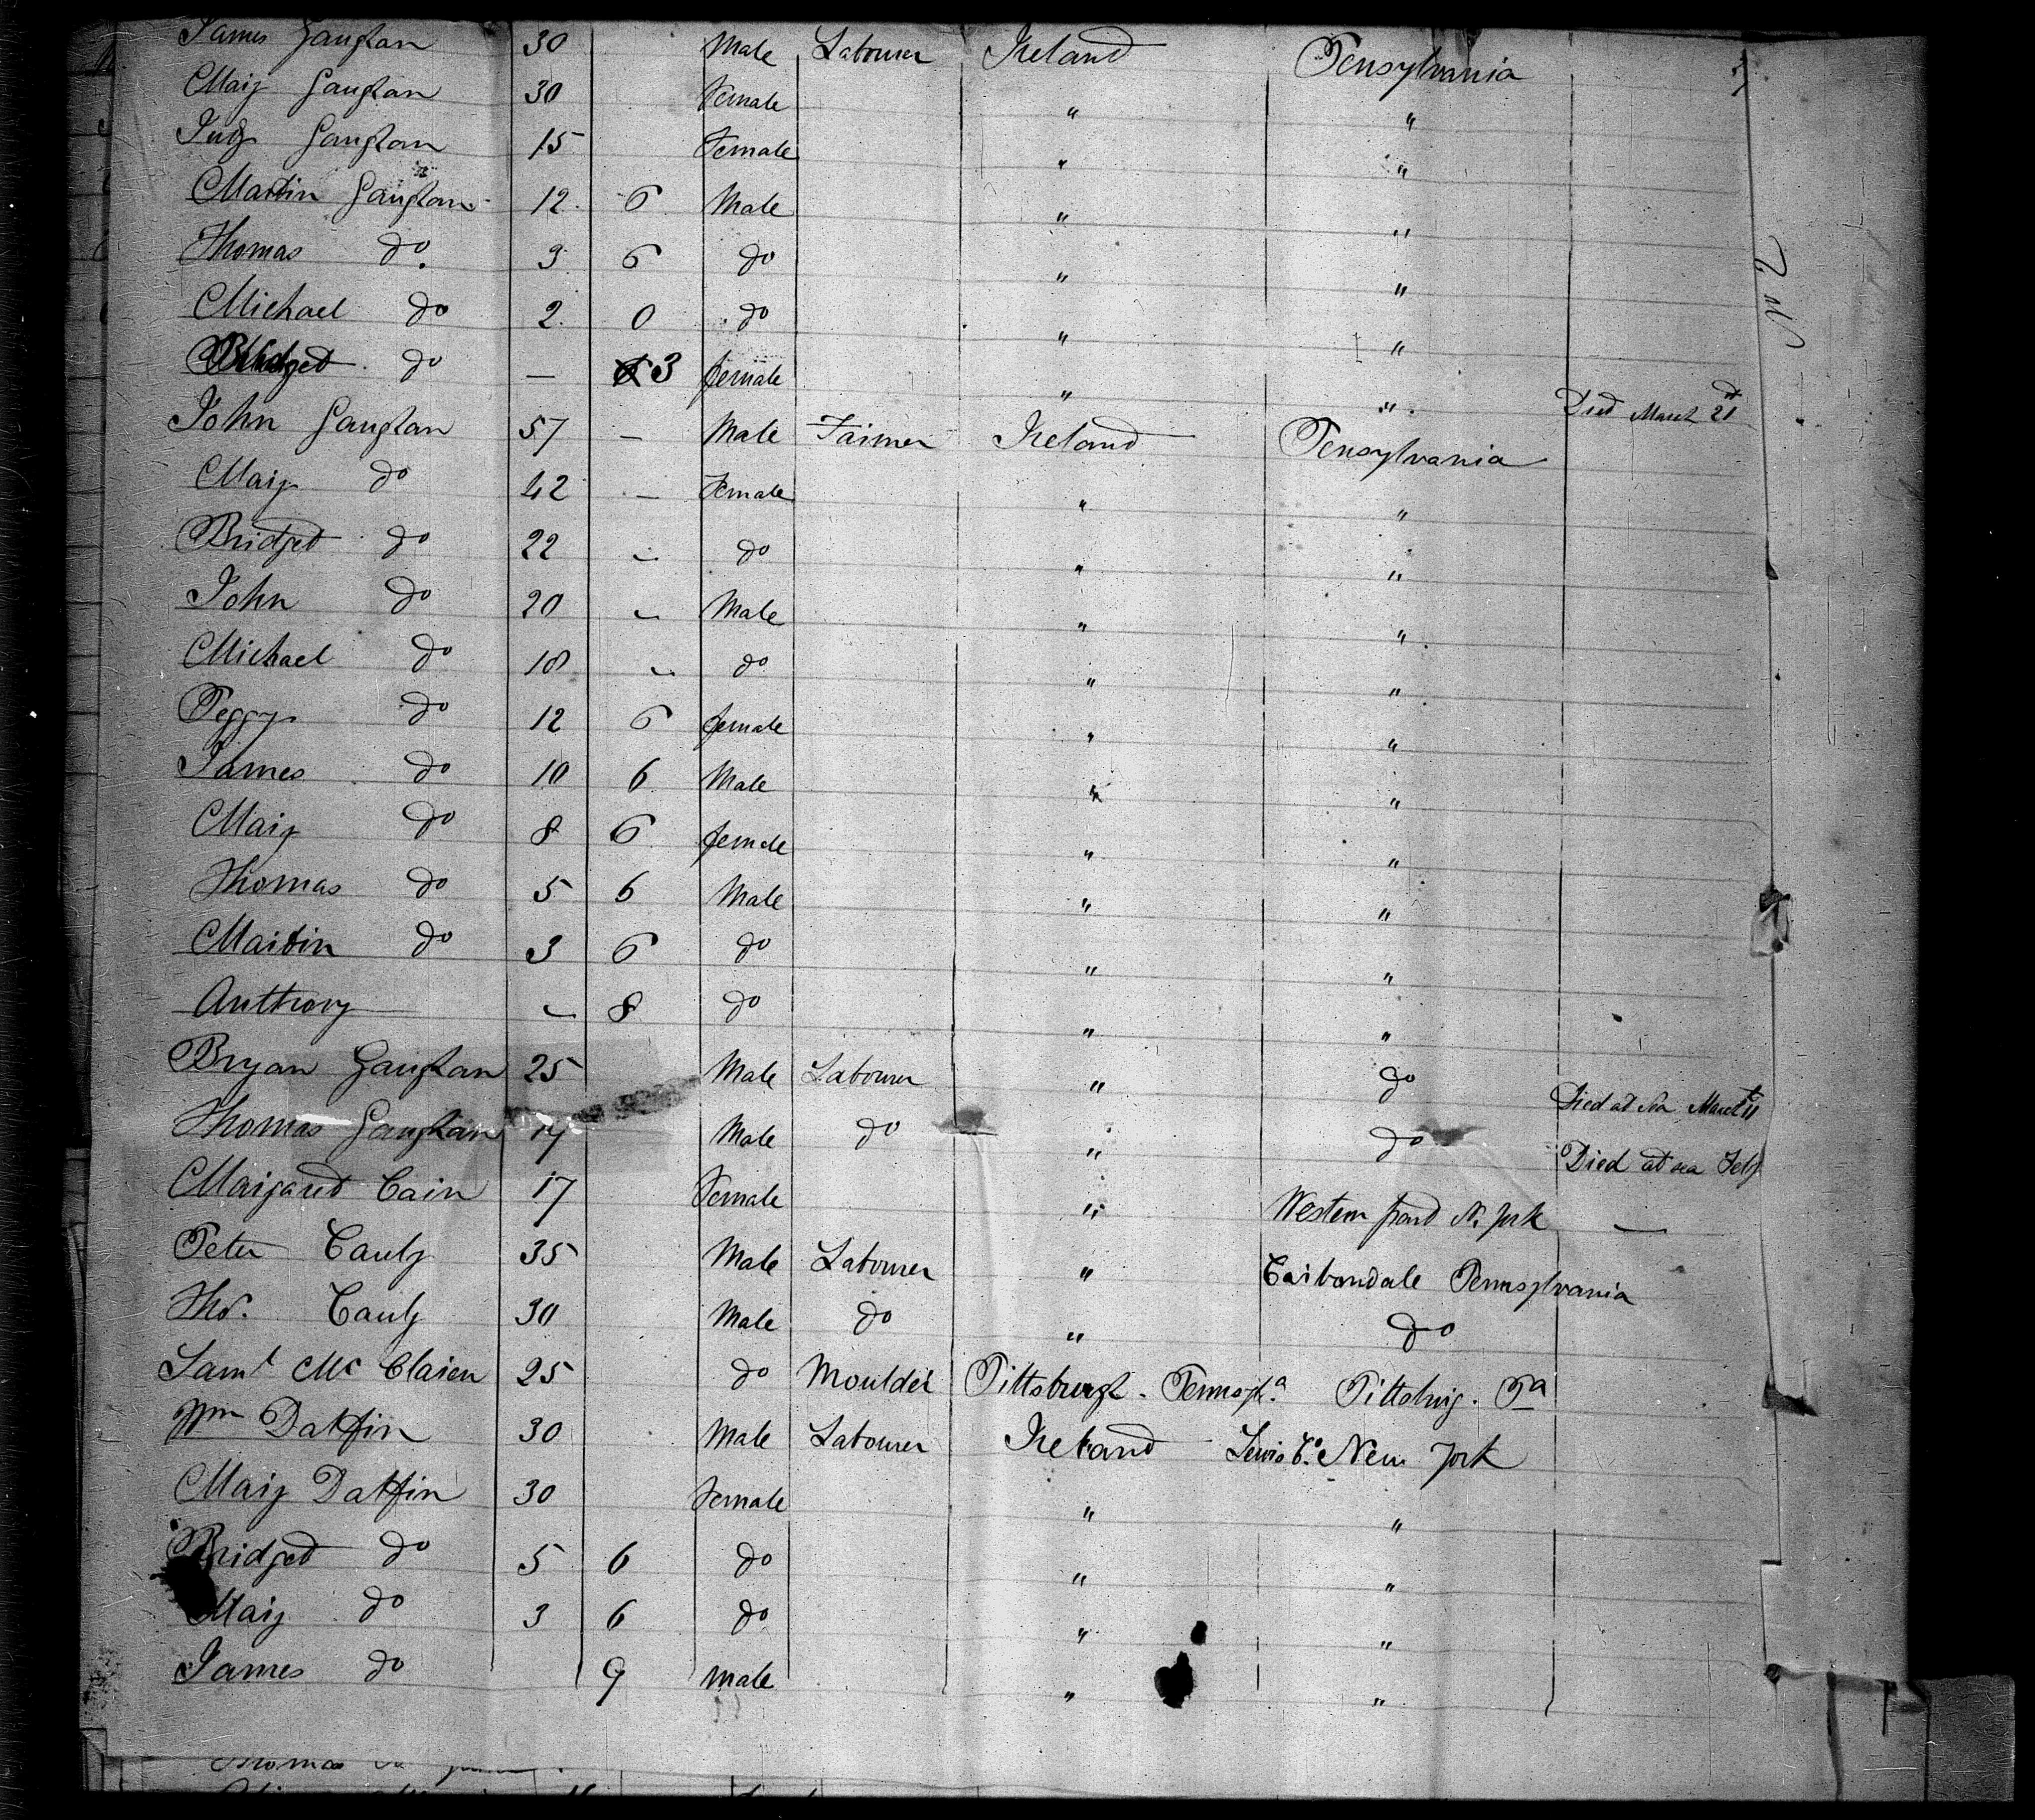 James Gaughan 30 Male Labourer Ireland Pensylvania
Mary Gaughan 30 Female " "
Judy Gaughan 15 Female " "
Martin Gaughan 12 6 Male " "
Thomas do. 3 6 do " "
Michael do 2 0 do " "
Bridget do — 3 female " " Died March 21st
John Gaughan 57 — Male Farmer Ireland Pensylvania
Mary do 42 — Female " "
Bridget do 22 – do " "
John do 20 – Male " "
Michael do 18 – do " "
Peggy do 12 6 female " "
James do 10 6 Male " "
Mary do 8 6 female " "
Thomas do 5 6 Male " "
Martin do 3 6 do " "
Anthony – 8 do " "
Bryan Gaughan 25 Male Labourer " do Died at Sea March 11
Thomas Gaughan Male do " do Died at sea Feby
Margaret Cain 17 Female " Western N. York —
Peter Cauly 35 Male Labourer " Carbondale Pennsylvania
Thos. Cauly 30 Male do " do
Saml Mc Claren 25 do Moulder Pittsburgh. Pa
Wm 30 Male Labourer Ireland Lewis Co. New York
Mary 30 Female " "
Bridget do 5 6 do " "
Mary do 3 6 do " "
James do 9 male " "
Thomas